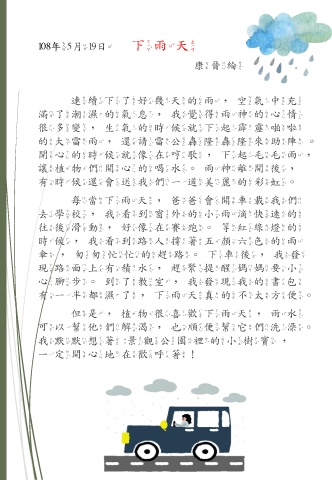 108年5月19日 下雨天
康晉綸
連續下了好幾天的雨，空氣中充
滿了潮濕的氣息，我覺得雨神的心情
很多變，生氣的時候就下起霹靂啪啦
的大雷雨，還請雷公轟隆轟隆來助陣。
開心的時候就像在哼歌，下起毛毛雨，
讓植物們開心的喝水。雨神離開後，
有時候還會送我們一道美麗的彩虹。
每當下雨天，爸爸會開車載我們
去學校，我看到窗外的小雨滴快速的
往後滑動，好像在賽跑。等紅綠燈的
時候，我看到路人撐著五顏六色的雨
傘，匆匆忙忙的趕路。下車後，我發
現路面上有積水，趕緊提醒媽媽要小
心腳步。到了教室，我發現我的書包
有一半都濕了，下雨天真的不太方便。
但是，植物很喜歡下雨天，雨水
可以幫他們解渴，也順便幫它們洗澡。
我默默想著：景觀公園裡的小樹寶，
一定開心地在歡呼著！